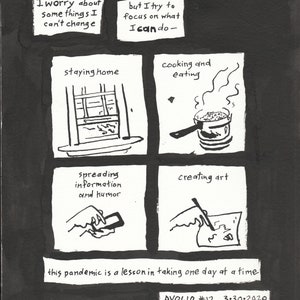 I worry about
some things I
can't change
but I try to
focus on what
I can do—
staying home
cooking and
eating
spreading
information
and humor
creating art
this pandemic is a lesson in taking one day at a time
#12 3•30•2020